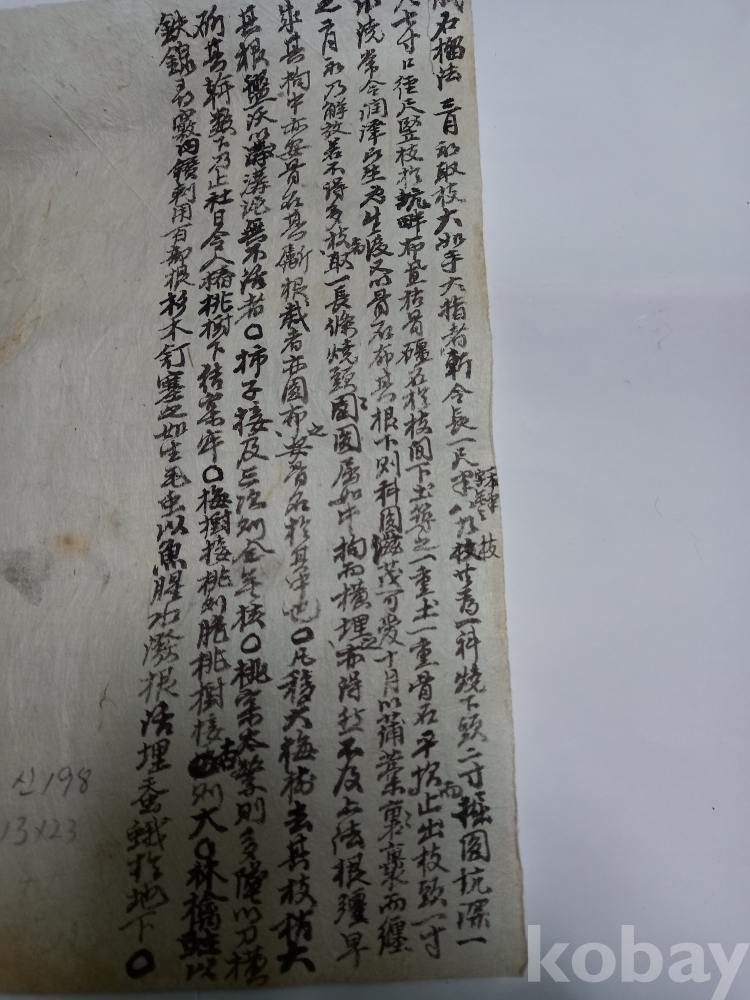 石榴法 三月初取枝大如手大指者斬令長一尺半八九枝共爲一科燒下頭二寸掘圓坑深一
尺七寸口徑尺竪枝於坑畔布置枯骨礓石於枝間下土築之一重土一重骨石平坎止出枝頭一寸
水澆常令潤澤旣生又以骨石布其根下則科圓滋茂可愛十月以蒲藁裹而纏
之二月初乃解放若不得多枝取一長條燒頭圓屈如牛拘而橫埋之亦得然不及上法根彊早
成其拘中亦安骨石其斸根栽者亦圓布之安骨石於其中也○凡移大梅樹去其枝梢大
其根盤沃以溝泥無不活者○柿子接及三次則全無核○桃實太繁則多墜以刀橫
斫其幹數下乃止社日令人樁桃樹下結實牢○梅樹接桃則脆桃樹接杏則大○林檎蛀以
鉄線尋竅內鑽刺用百部根杉木釘塞之如生毛虫以魚腥水潑根活埋蚕蛾於地下○
산198
13X23
kobay